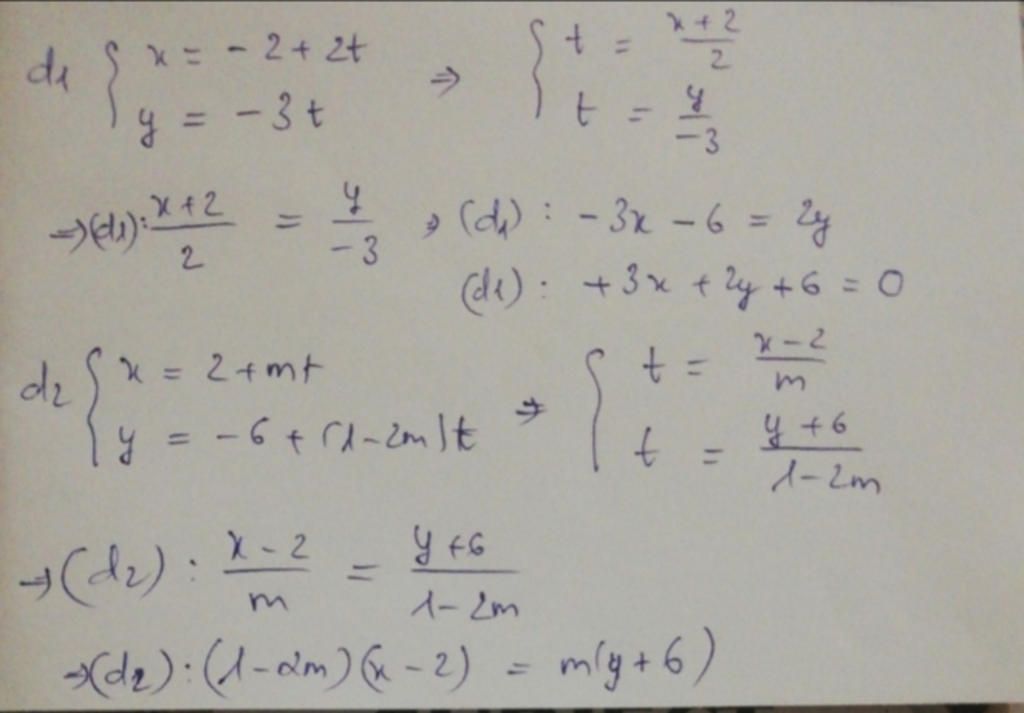 d1 { x = -2 + 2t ⇒ { t = (x+2)/2
y = -3t t = y/-3
⇒ (d1): (x+2)/2 = y/-3 ⇒ (d1) : -3x - 6 = 2y
(d1) : +3x + 2y + 6 = 0
d2 { x = 2 + mt ⇒ { t = (x-2)/m
y = -6 + (1-2m)t t = (y+6)/(1-2m)
⇒ (d2) : (x-2)/m = (y+6)/(1-2m)
⇒ (d2) : (1-2m)(x-2) = m(y+6)